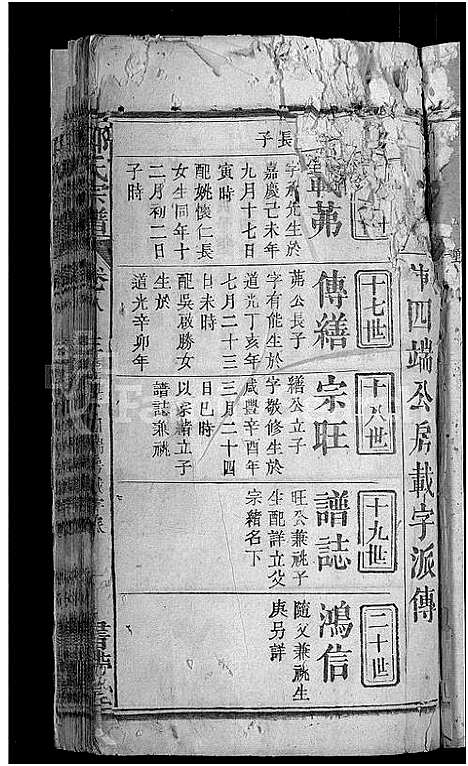 四端公房載字派傳
十七世
十八世
十九世
二十世
長子
茀
字承先生於
嘉慶己未年
九月十七日
寅時
配姚懷仁長
女生同年十
二月初二日
子時
傳繕
茀公長子
字有能生於
道光丁亥年
七月二十三
日未時
配吳啟勝女
生於
道光辛卯年
宗旺
繕公立子
字敬修生於
咸豐辛酉年
三月二十四
日巳時
以宗緒立子
譜誌兼祧
譜誌
旺公兼祧子
生配詳立父
宗緒名下
鴻信
隨父兼祧生
庚另詳
氏宗譜